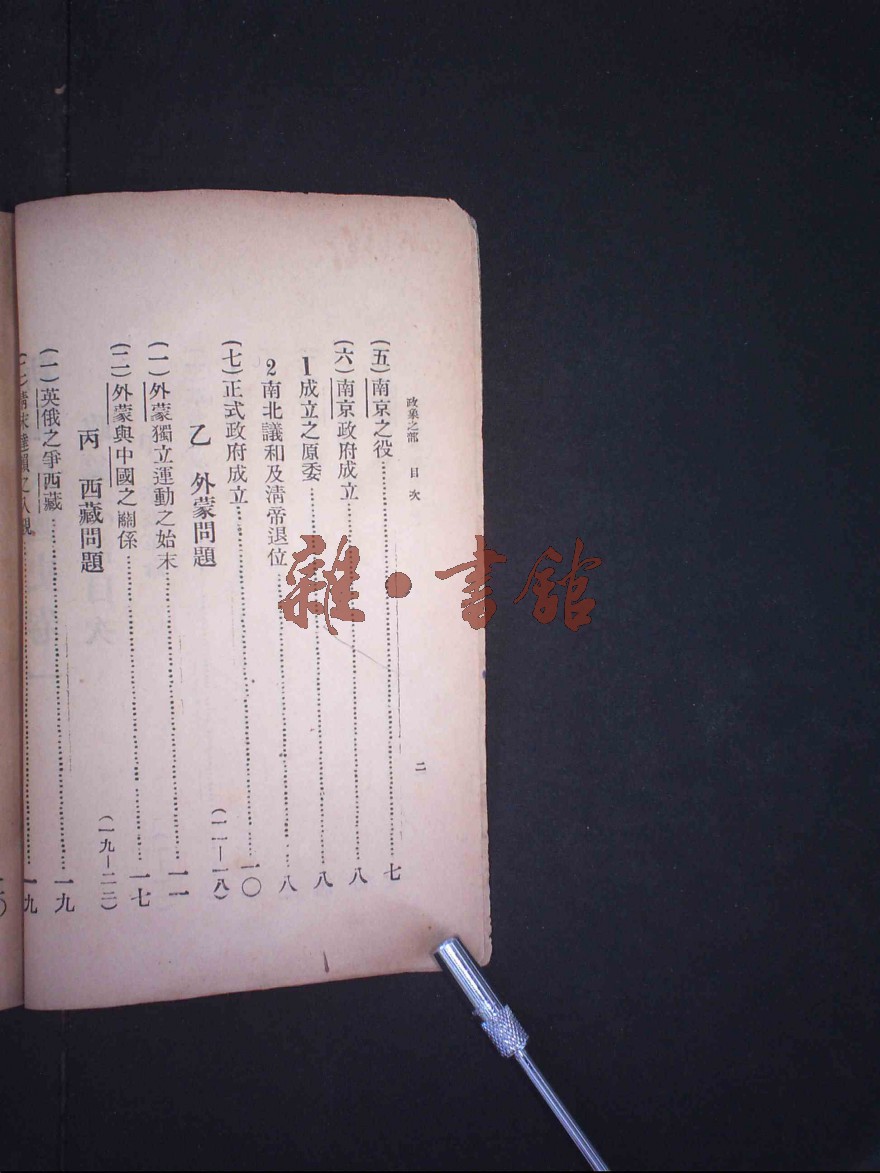 政業之部 目次 二
(五)南京之役……七
(六)南京政府成立……八
1成立之原委……八
2南北議和及淸帝退位……八
(七)正式政府成立……一〇
乙 外蒙問題 (一一—一八)
(一)外蒙獨立運動之始末……一一
(二)外蒙與中國之關係……一七
丙 西藏問題 (一九—二二)
(一)英俄之爭西藏……一九
淸末達賴之入覲……一九
雜·書館